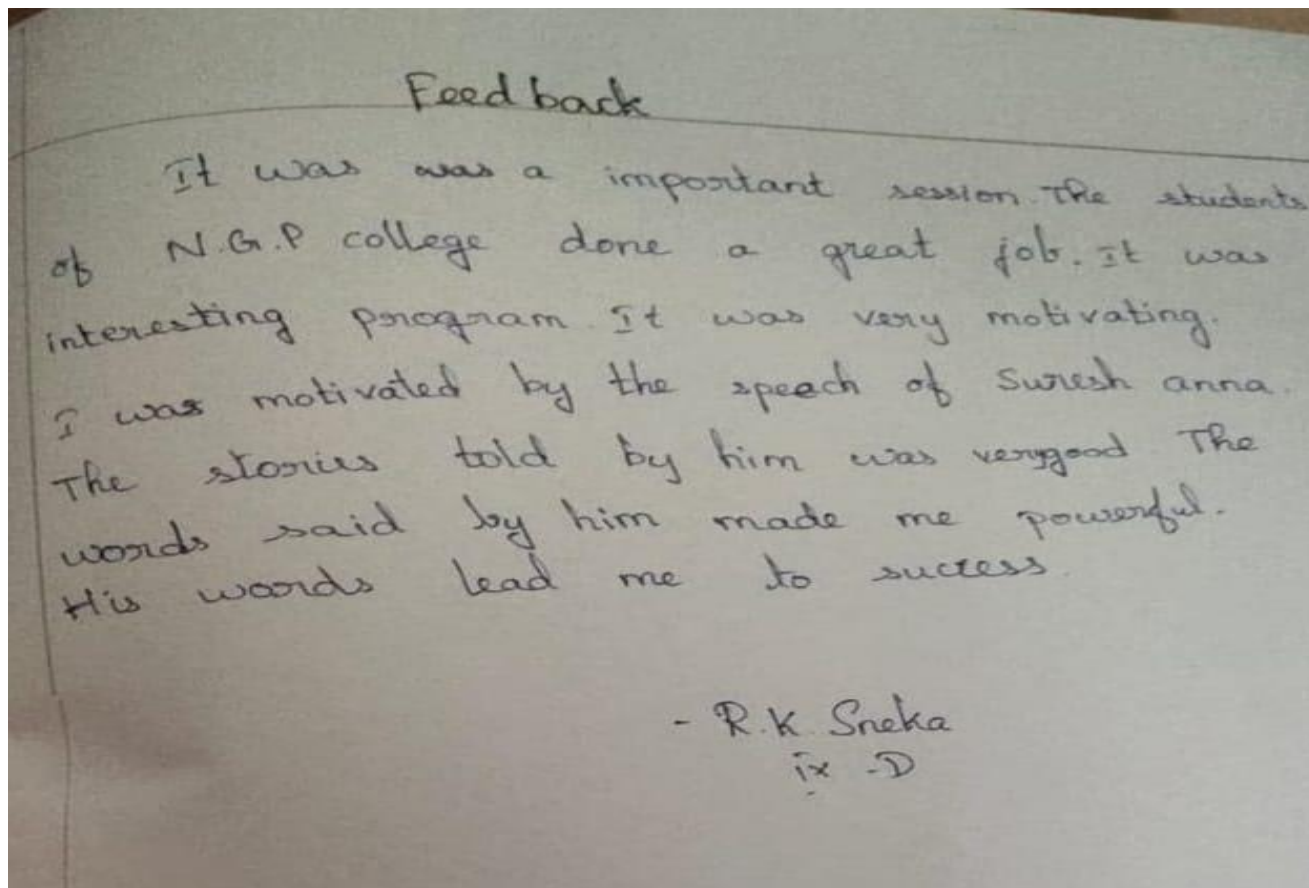 Feed back
It was was a important session. The students
of N.G.P college done a great job. It was
interesting program. It was very motivating.
I was motivated by the speech of Suresh anna.
The stories told by him was verygood. The
words said by him made me powerful.
His words lead me to success.
- R.K. Sneka
ix - D